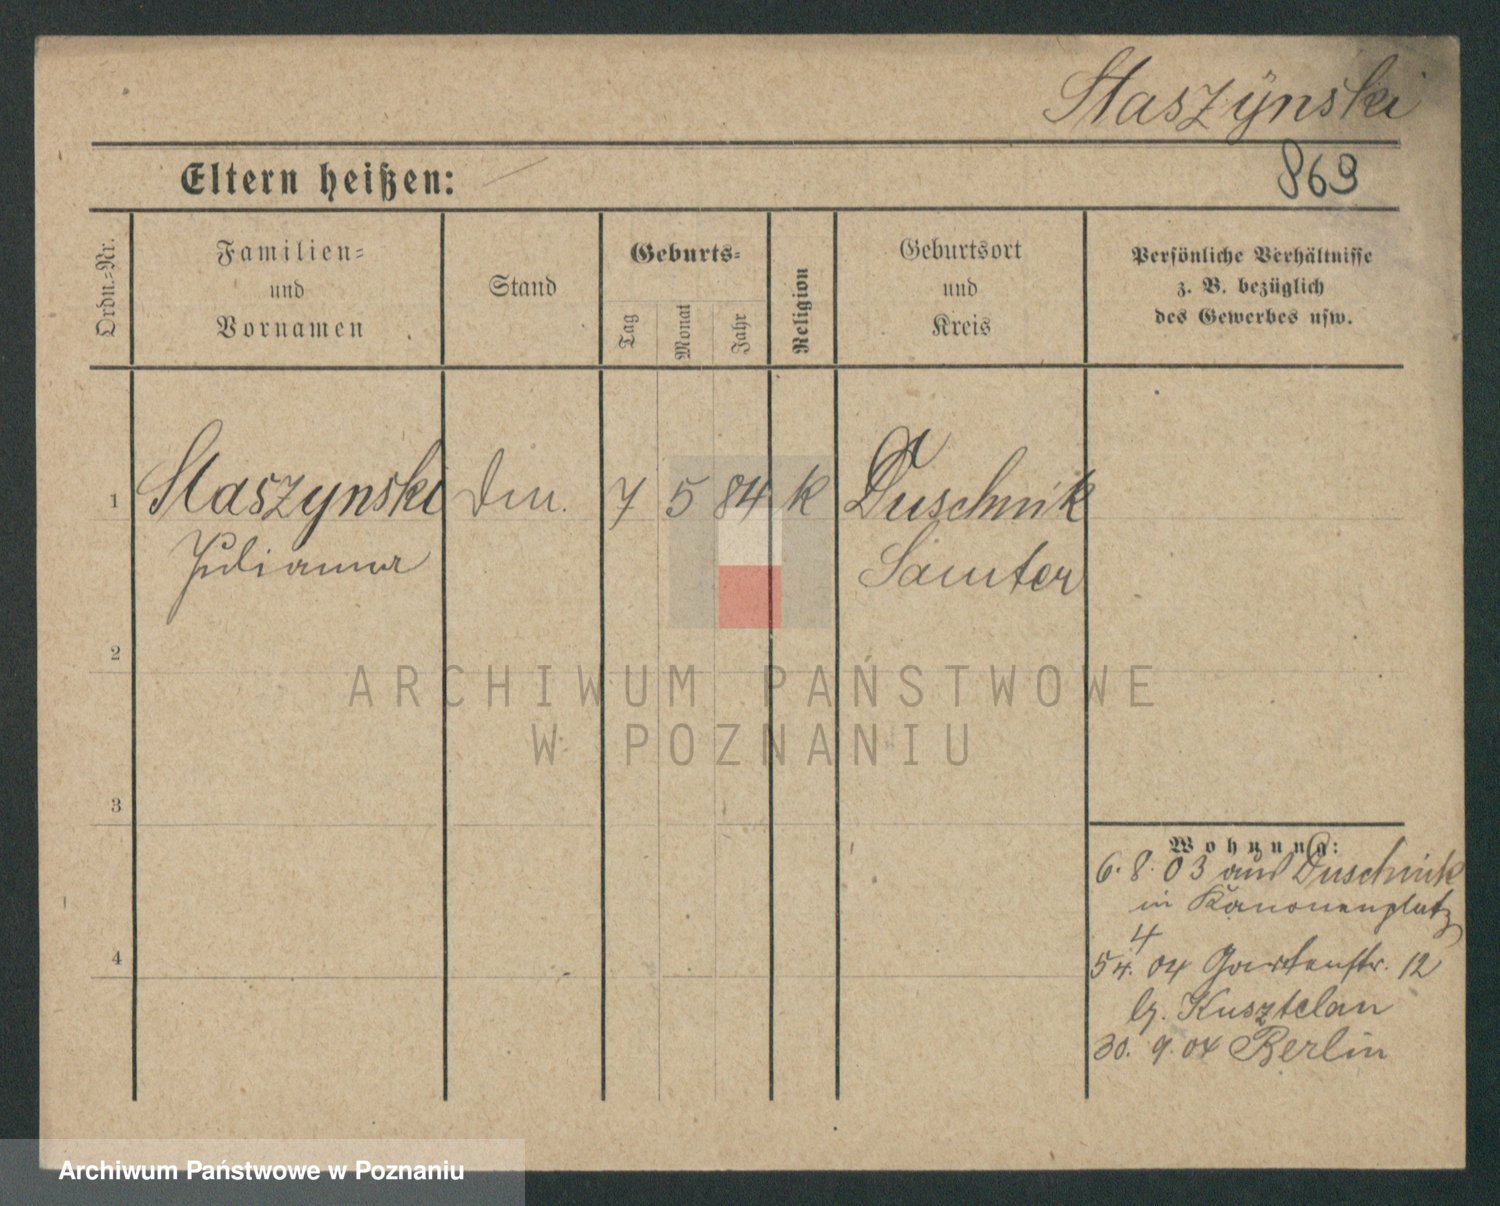 Staszÿnski
Eltern heißen:
869
Ordn.-Nr.
Familien-
und
Vornamen
Stand
Geburts-
Tag
Monat
Jahr
Religion
Geburtsort
und
Kreis
Persönliche Verhältnisse
z. B. bezüglich
des Gewerbes usw.
1 Staszynski 7 5 84 k Duschnik
Julianna Samter
2
3
4
Wohnung:
6. 8. 03 aus Duschnik
in Kanonenplatz
4
5 4. 04 Gartenstr. 12
b. Kusztelan
30. 9. 04 Berlin
ARCHIWUM PAŃSTWOWE
W POZNANIU
Archiwum Państwowe w Poznaniu